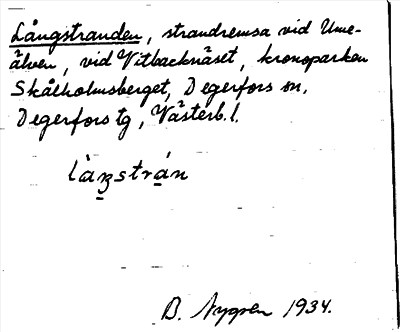 Långstranden, strandremsa vid Ume-
älven, vid Vitbacknäset, kronoparken
Skålholmsberget, Degerfors sn,
Degerfors tg, Västerb. l.
làꞑstrán
B. Nygren 1934.